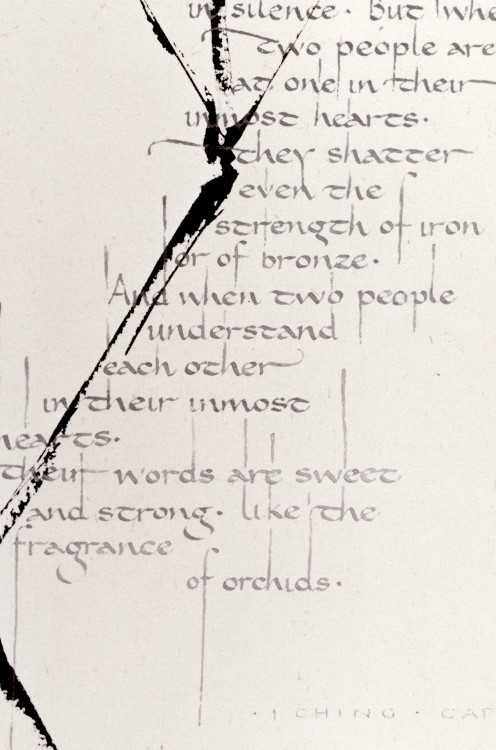 in silence. But whe
two people are
at one in their
inmost hearts.
they shatter
even the
strength of iron
or of bronze.
And when two people
understand
each other
in their inmost
hearts.
their words are sweet
and strong. like the
fragrance
of orchids.
· I CHING · CAP